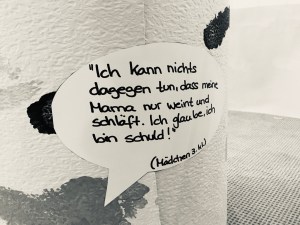 "Ich kann nichts
dagegen tun, dass meine
Mama nur weint und
schläft. Ich glaube, ich
bin schuld!"
(Mädchen 3. Kl.)